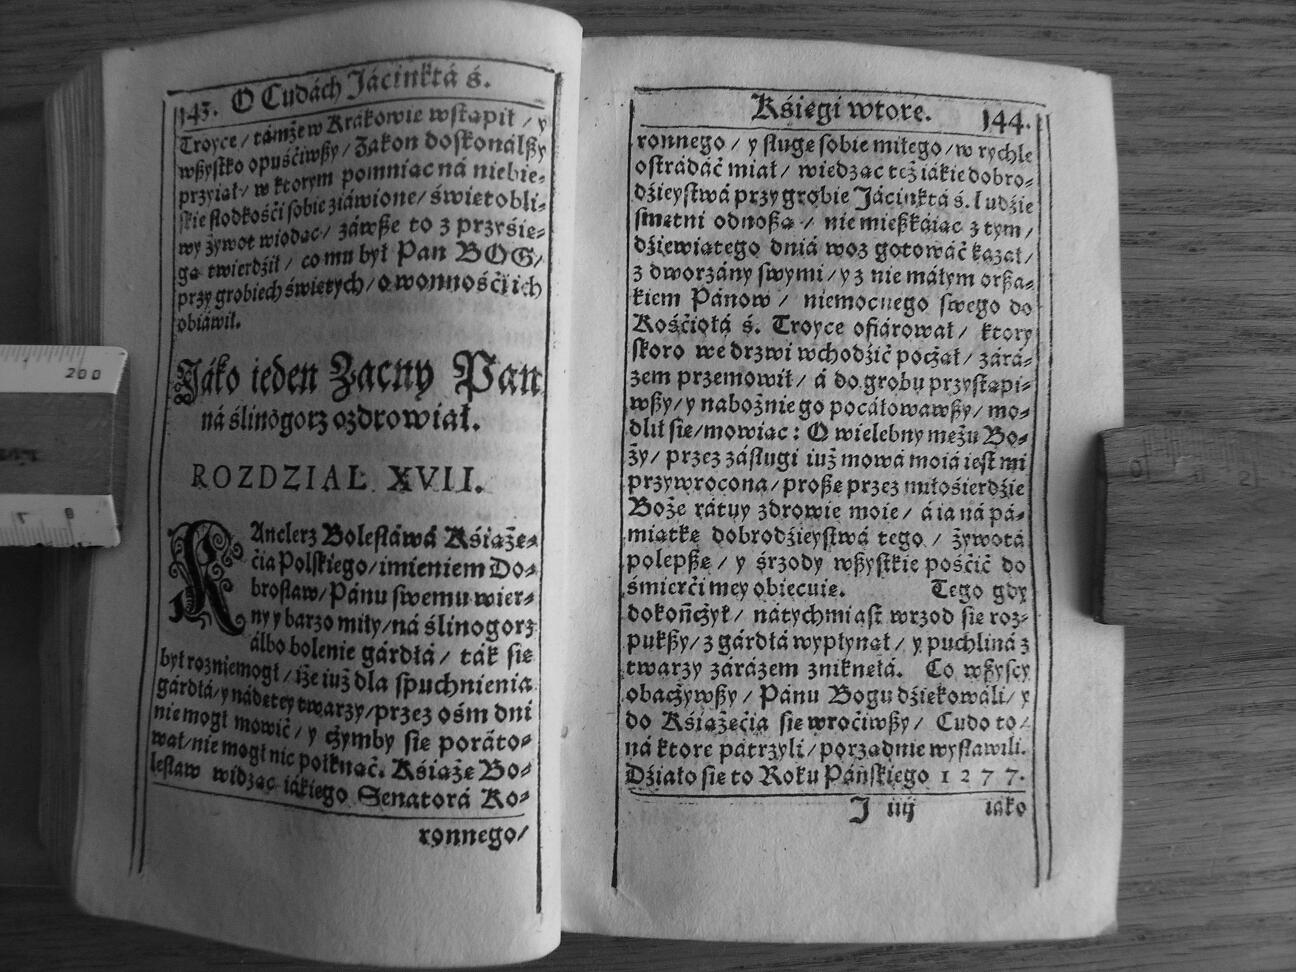 143. O Cudách Jácinktá ś.
Troyce / támże w Krákowie wstąpił / y
wßystko opuśćiwßy / Zakon doskonálßy
przyiął / w ktorym pomniąc ná niebie⸗
skie słodkośći sobie ziáwione / świetobli⸗
wy żywot wiodąc / záwße to z przyśie⸗
gą twierdźił / co mu był Pan BOG /
przy grobiech świętych / o wonnośći ich
obiáwił.
Jáko ieden Zacny Pan
ná ślinogorz ozdrowiał.
ROZDZIAŁ XVII.
KAnclerz Bolesłáwá Kśiążę⸗
ćia Polskiego / imieniem Do⸗
brosław / Pánu swemu wier⸗
ny y barzo miły / ná ślinogorz
álbo bolenie gárdłá / ták sie
był rozniemogł / iże iuż dla spuchnienia
gárdłá / y nádętey twarzy / przez ośm dni
nie mogł mowić / y czymby sie poráto⸗
wał / nie mogł nic połknąć. Kśiążę Bo⸗
lesław widząc iákiego Senatorá Ko⸗
ronnego /
Kśięgi wtore. 144.
ronnego / y sługę sobie miłego / w rychle
ostrádáć miał / wiedząc też iákie dobro⸗
dźieystwá przy grobie Jácinktá ś. ludźie
smętni odnoßą / nie mießkáiąc z tym /
dźiewiątego dniá woz gotowáć kazał /
z dworzány swymi / y z nie máłym orßa⸗
kiem Pánow / niemocnego swego do
Kośćiołá ś. Troyce ofiárował / ktory
skoro we drzwi wchodźić począł / zárá⸗
zem przemowił / á do grobu przystąpi⸗
wßy / y nabożnie go pocáłowawßy / mo⸗
dlił sie / mowiąc : O wielebny mężu Bo⸗
ży / przez zásługi iuż mowá moiá iest mi
przywrocona / proßę przez miłośierdźie
Boże rátuy zdrowie moie / á ia ná pá⸗
miątkę dobrodźieystwá tego / żywotá
polepßę / y śrzody wßystkie pośćić do
śmierći mey obiecuię. Tego gdy
dokończył / nátychmiast wrzod sie roz⸗
pukßy / z gárdłá wypłynął / y puchliná z
twarzy zárázem zniknęłá. Co wßyscy
obaczywßy / Pánu Bogu dźiękowáli / y
do Kśiążęćia sie wroćiwßy / Cudo to /
ná ktore pátrzyli / porządnie wysławili.
Dźiało sie to Roku Páńskiego 1 2 7 7.
J iiij iako
200